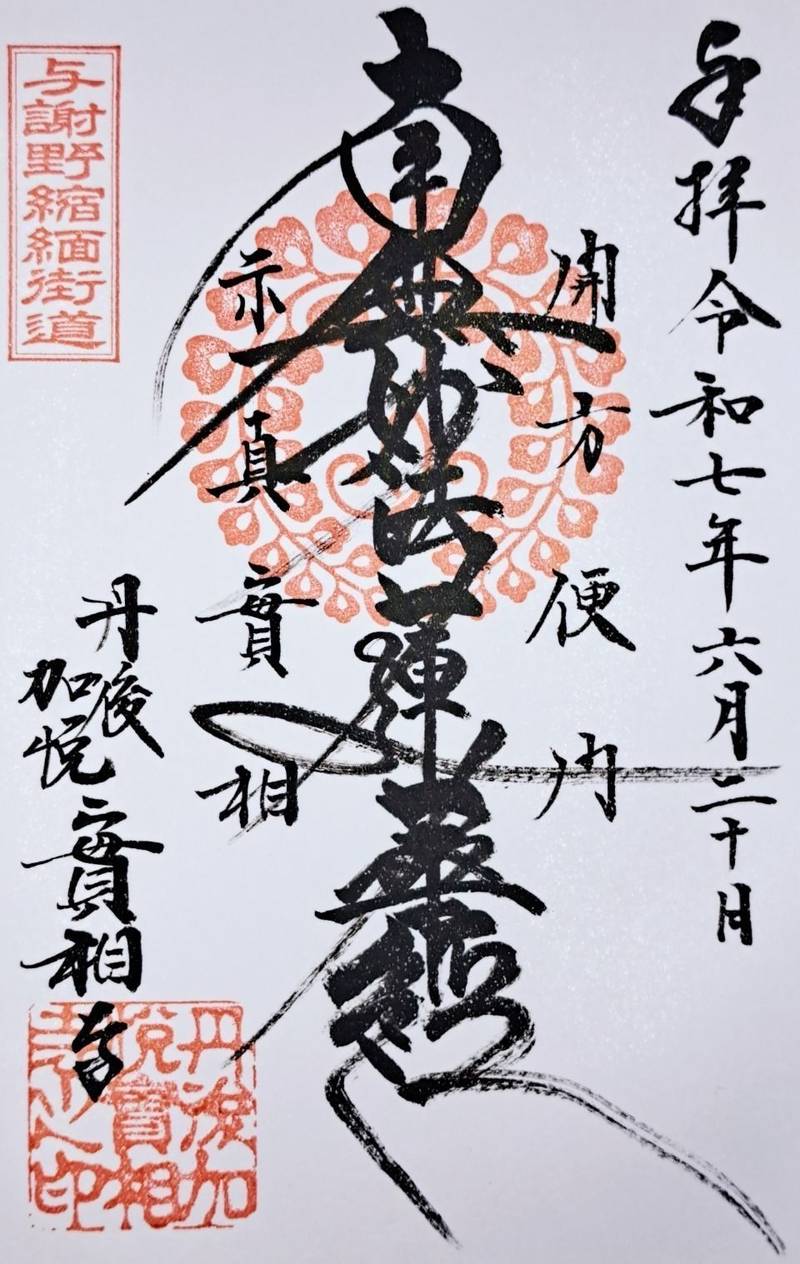 奉拝 令和七年六月二十日
開方便門
南無妙法蓮華経
示真實相
丹後
加悦 實相寺
与謝野縮緬街道
丹後加
悦實相
寺之印